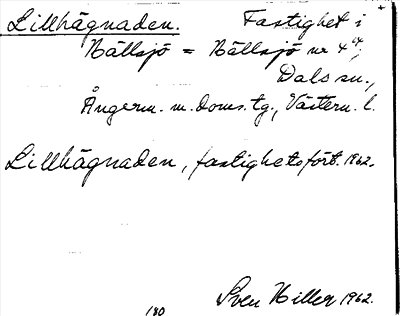 Lillhägnaden. Fastighet i
Nällsjö = Nällsjö nr 4 4,
Dals sn.,
Ångerm. m. doms.tg., Västern. l.
Lillhägnaden, fastighetsfört. 1962.
Sven Hiller 1962.
180